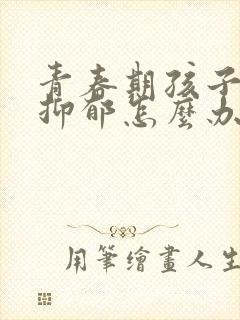 青春期孩子
抑郁怎麼办
用筆繪畫人生